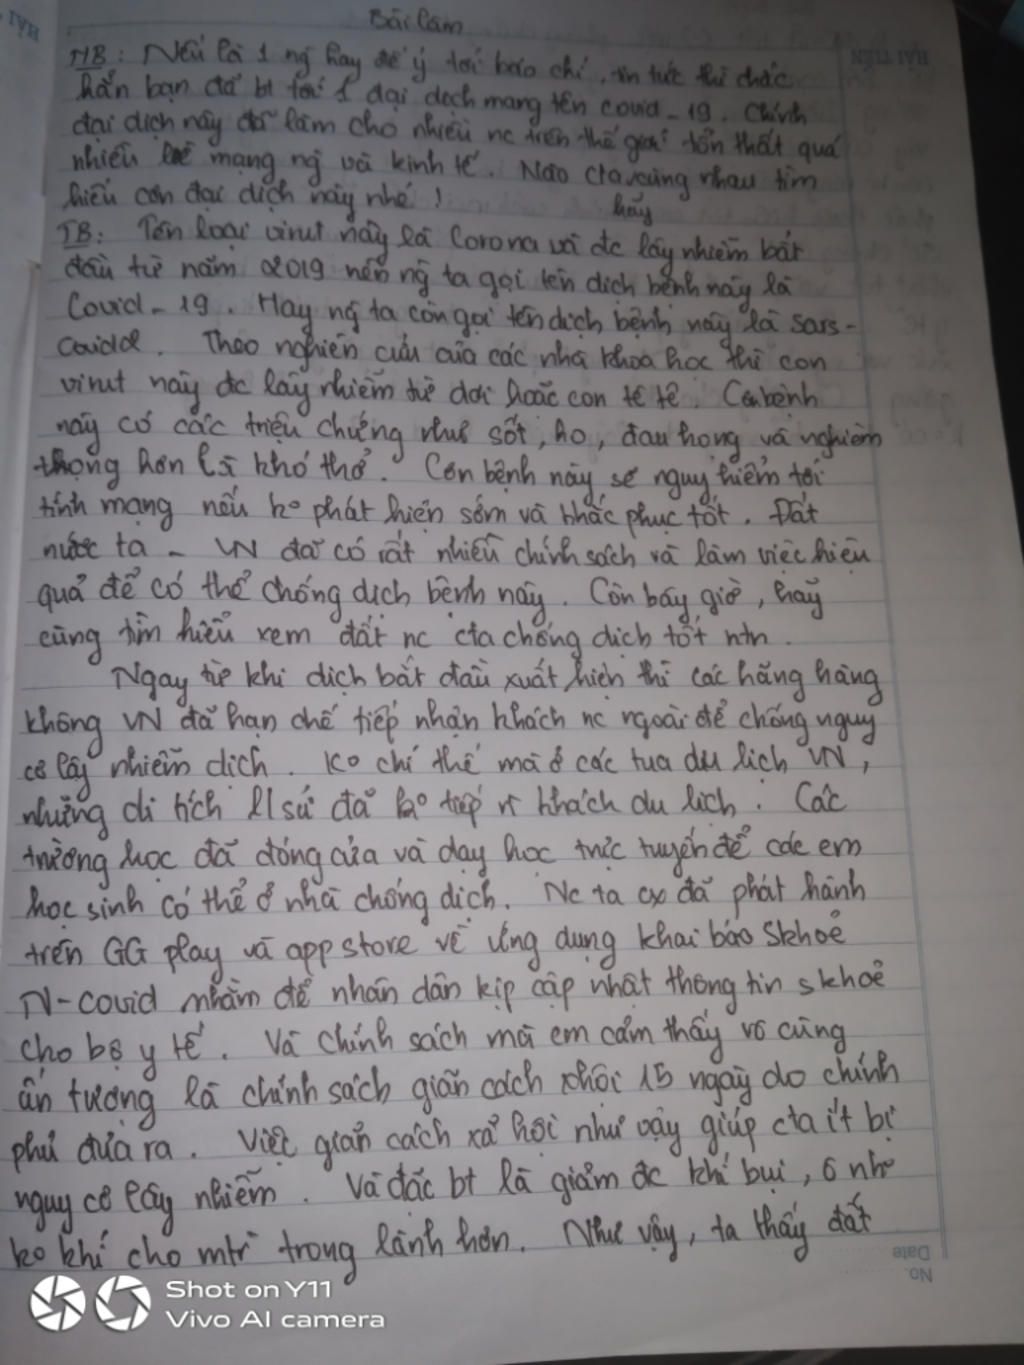 Bài làm
MB: Nếu là 1 ng hay để ý tới báo chí, tin tức thì chắc
hẳn bạn đã bt tới 1 đại dịch mang tên covid-19. Chính
đại dịch này đã làm cho nhiều nc trên thế giới tổn thất quá
nhiều về mạng ng và kinh tế. Nào cta cùng nhau tìm
hiểu cơn đại dịch này nhé!
hãy
TB: Tên loại virut này là Corona và đc lây nhiễm bắt
đầu từ năm 2019 nên ng ta gọi tên dịch bệnh này là
Covid-19. Hay ng ta còn gọi tên dịch bệnh này là sars-
. Theo nghiên cứu của các nhà khoa học thì con
virut này đc lây nhiễm từ dơi hoặc con tê tê. Cơn bệnh
này có các triệu chứng như sốt, ho, đau họng và nghiêm
trọng hơn là khó thở. Cơn bệnh này sẽ nguy hiểm tới
tính mạng nếu ko phát hiện sớm và khắc phục tốt. Đất
nước ta - VN đã có rất nhiều chính sách và làm việc hiệu
quả để có thể chống dịch bệnh này. Còn bây giờ, hãy
cùng tìm hiểu xem đất nc cta chống dịch tốt ntn.
Ngay từ khi dịch bắt đầu xuất hiện thì các hãng hàng
không VN đã hạn chế tiếp nhận khách nc ngoài để chống nguy
cơ lây nhiễm dịch. Ko chỉ thế mà ở các tua du lịch VN,
những di tích lsử đã ko tiếp khách du lịch. Các
trường học đã đóng cửa và dạy học trực tuyến để các em
học sinh có thể ở nhà chống dịch. Nc ta cx đã phát hành
trên GG play và app store về ứng dụng khai báo skhoẻ
N-covid nhằm để nhân dân kịp cập nhật thông tin skhoẻ
cho bộ y tế. Và chính sách mà em cảm thấy vô cùng
ấn tượng là chính sách giãn cách xhội 15 ngày do chính
phủ đưa ra. Việc giãn cách xã hội như vậy giúp cta ít bị
nguy cơ lây nhiễm. Và đặc bt là giảm đc khí bụi, ô nh
ko khí cho mtr trong lành hơn. Như vậy, ta thấy đất
HẢI TIẾN
No.
Date
Shot on Y11
Vivo AI camera